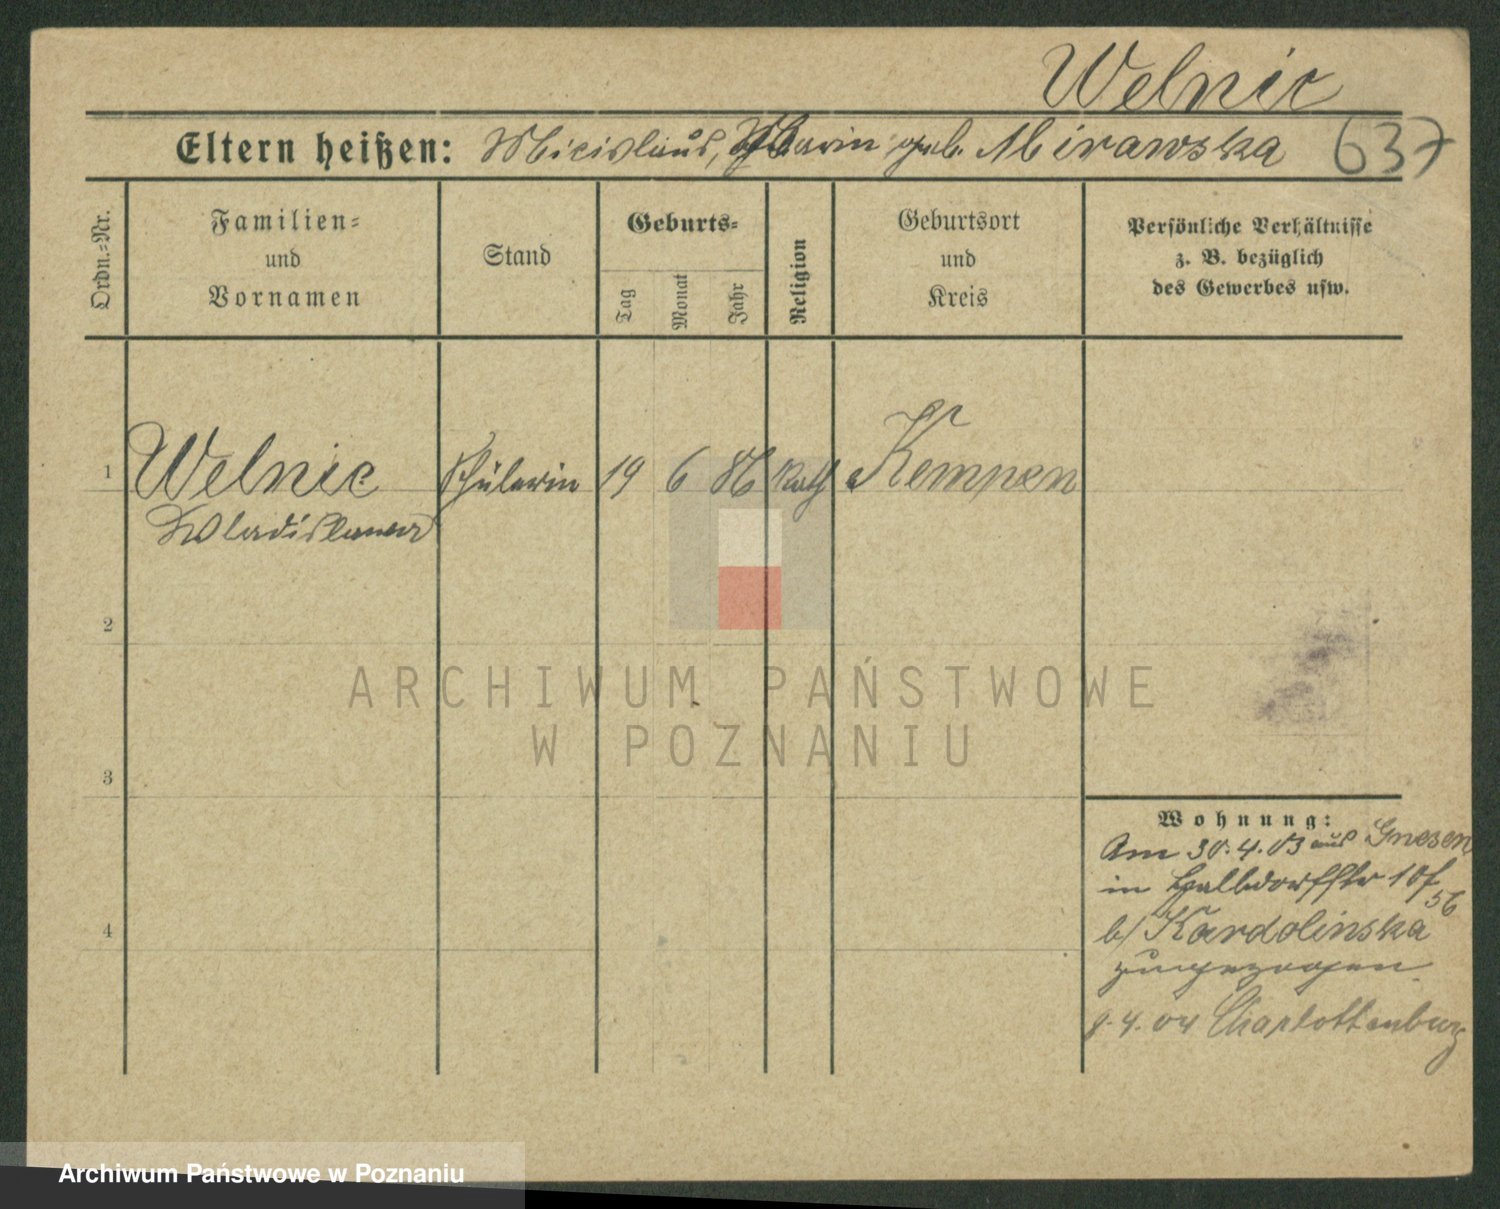 Welnic
Eltern heißen: Micislaus, Marie geb. Mirawska 637
Ordn.-Nr.
Familien-
und
Vornamen
Stand
Geburts-
Tag
Monat
Jahr
Religion
Geburtsort
und
Kreis
Persönliche Verhältnisse
z. B. bezüglich
des Gewerbes usw.
1 Welnic Schülerin 19 6 86 kath Kempen
Wladislawa
2
3
4
Wohnung:
Am 30.4.03 aus Gnesen
in Halbdorffstr 10f
b/ Kardolinska
zugezogen
9.4.04 Charlottenburg
ARCHIWUM PAŃSTWOWE
W POZNANIU
Archiwum Państwowe w Poznaniu